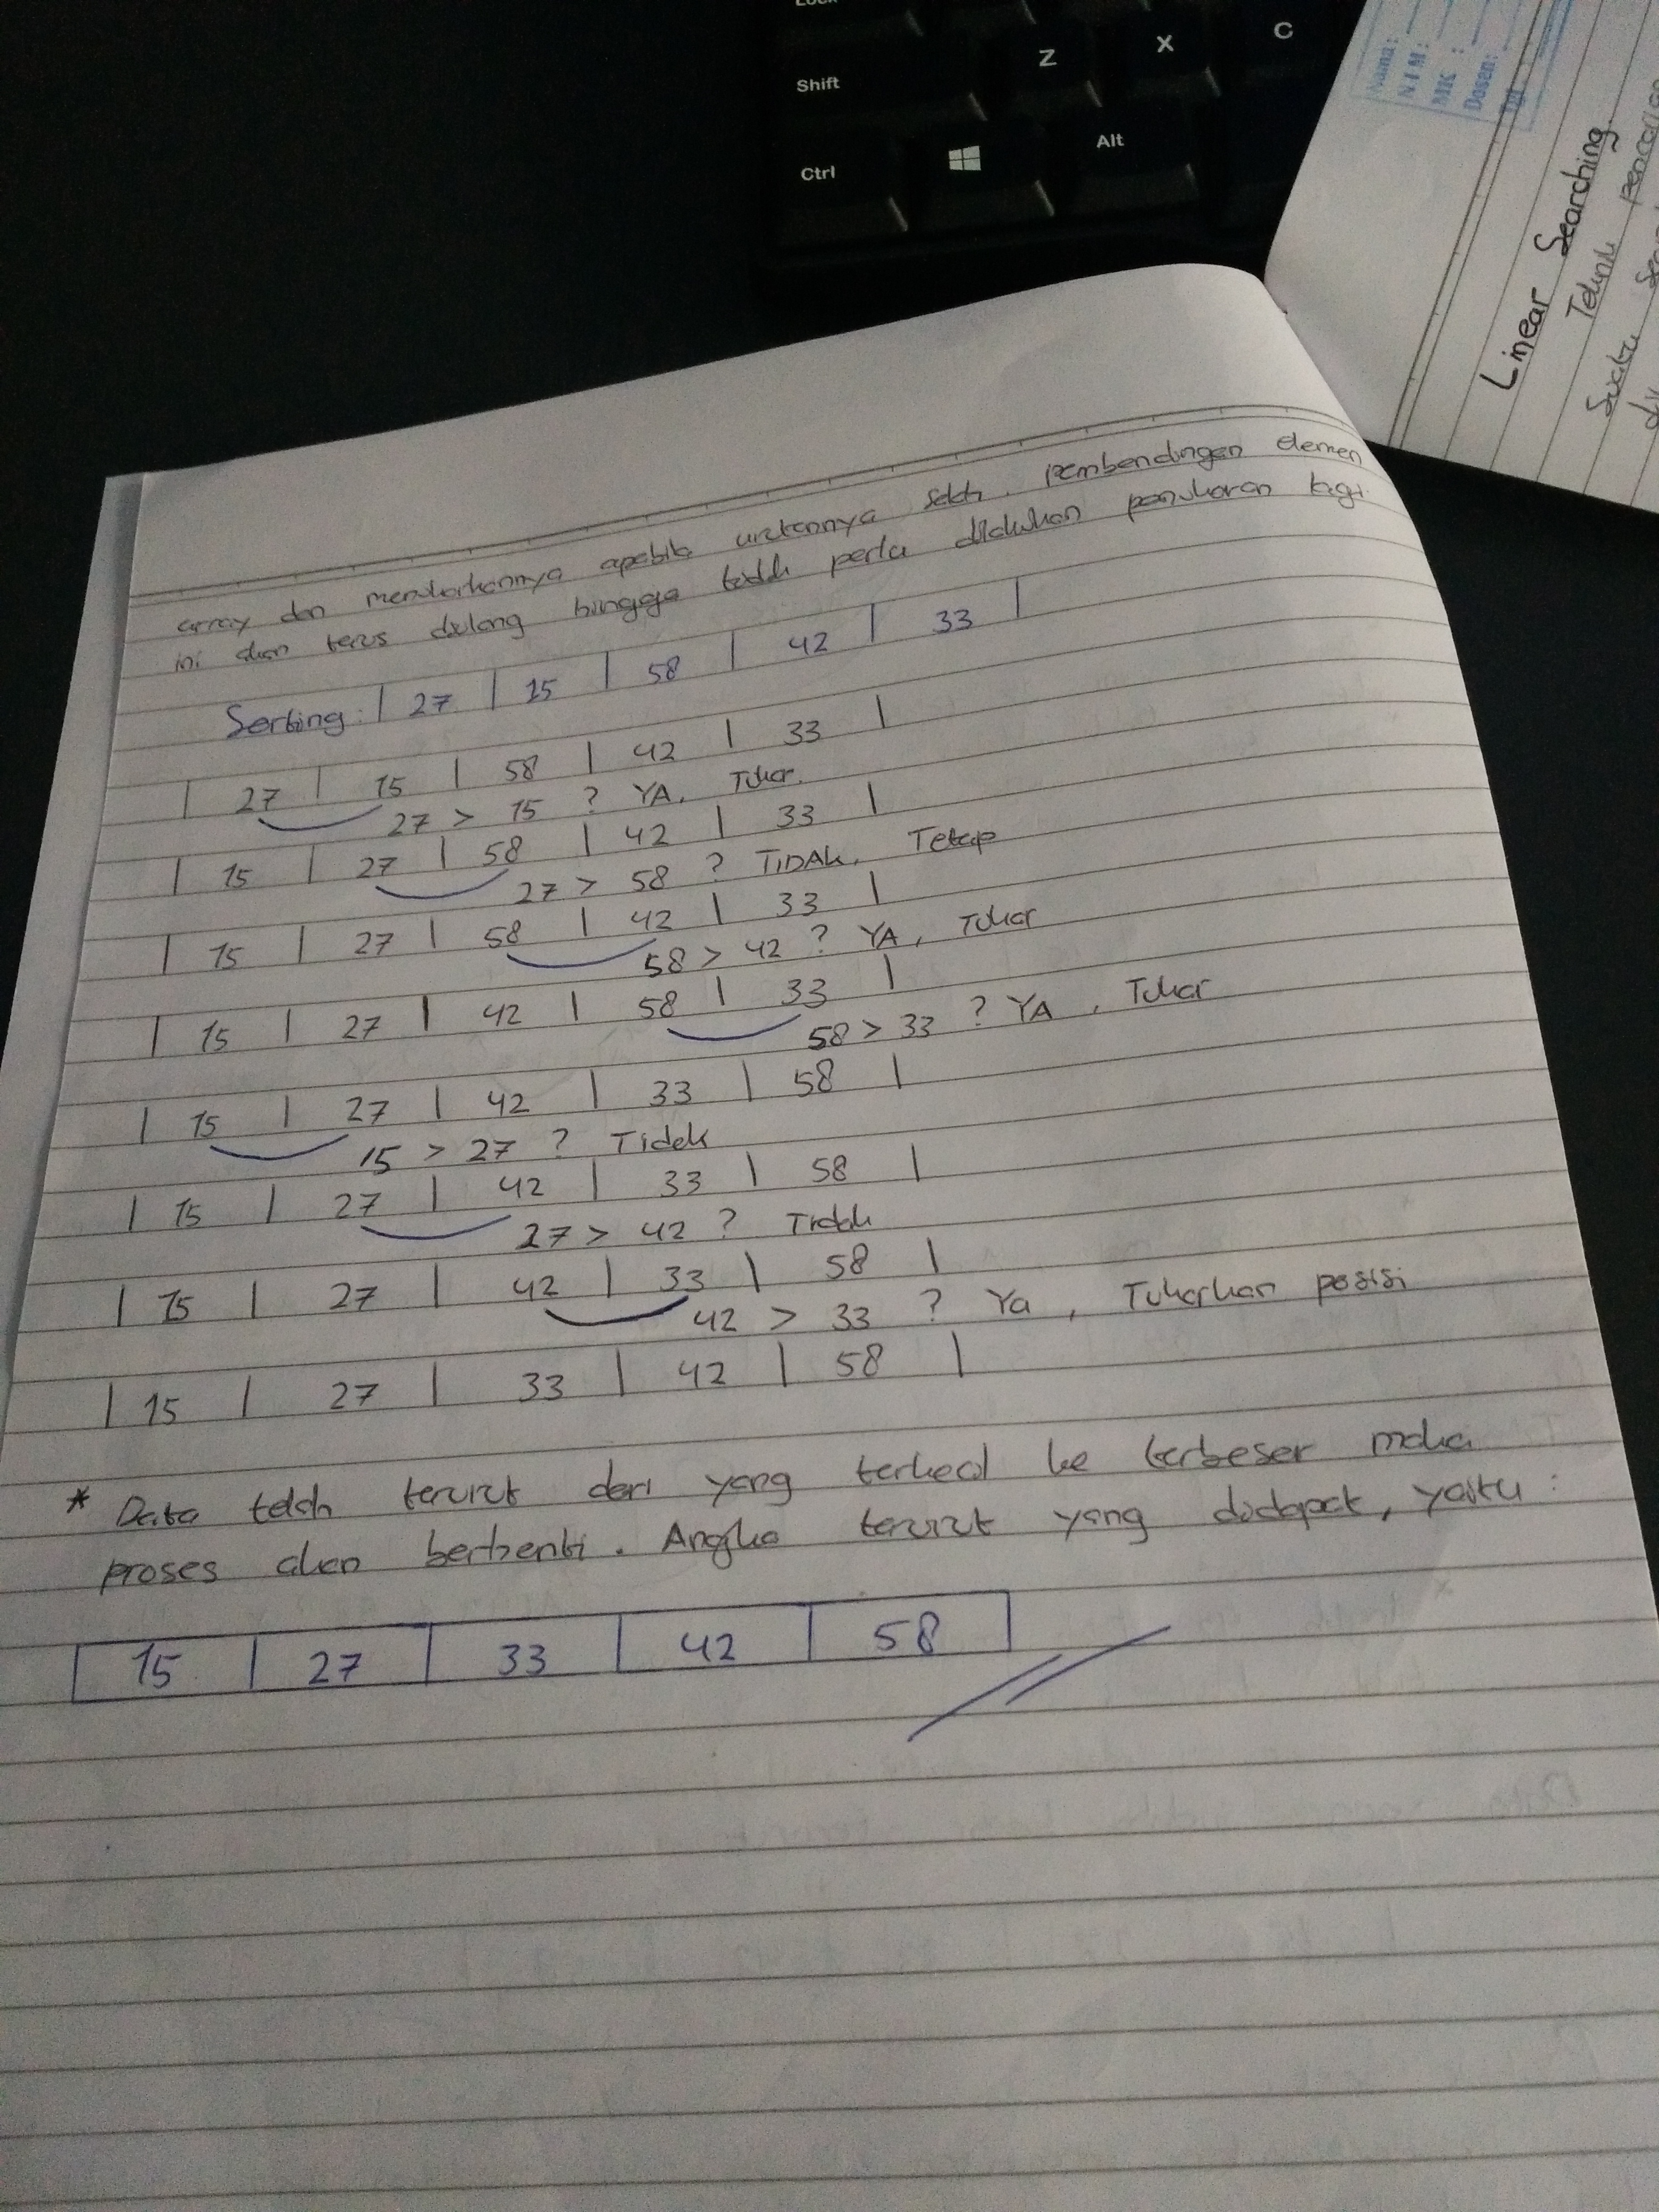 Lock
Shift
Z
X
C
Ctrl
Alt
Nama:
NIM:
MK :
Dosen:
Tgl
Linear Searching
Teknik
Suatu
array dan menukarkannya apabila urutannya salah. pembandingan elemen
ini akan terus diulang hingga tidak perlu dilakukan penukaran lagi.
Sorting : | 27 | 15 | 58 | 42 | 33 |
| 27 | 15 | 58 | 42 | 33 |
27 > 15 ? YA, Tukar.
| 15 | 27 | 58 | 42 | 33 |
27 > 58 ? TIDAK, Tetap
| 15 | 27 | 58 | 42 | 33 |
58 > 42 ? YA, Tukar
| 15 | 27 | 42 | 58 | 33 |
58 > 33 ? YA, Tukar
| 15 | 27 | 42 | 33 | 58 |
15 > 27 ? Tidak
| 15 | 27 | 42 | 33 | 58 |
27 > 42 ? Tidak
| 15 | 27 | 42 | 33 | 58 |
42 > 33 ? Ya, Tukarkan posisi
| 15 | 27 | 33 | 42 | 58 |
* Data telah terurut dari yang terkecil ke terbesar maka
proses akan berhenti. Angka terurut yang didapat, yaitu :
| 15 | 27 | 33 | 42 | 58 |